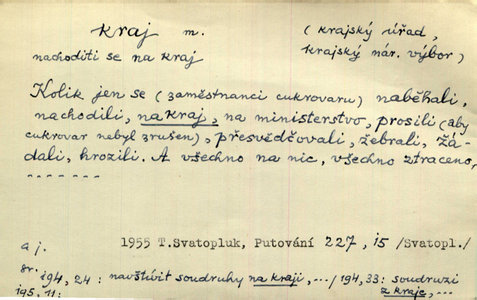 kraj m. (krajský úřad,
nachoditi se na kraj krajský nár. výbor)
Kolik jen se (zaměstnanci cukrovaru) naběhali,
nachodili, na kraj, na ministerstvo, prosili (aby
cukrovar nebyl zrušen), přesvědčovali, žebrali, žá-
dali, hrozili. A všechno na nic, všechno ztraceno,
- - - - - - -
1955 T.Svatopluk, Putování 227, i5 /Svatopl./
a j.
sr. i94, 24: navštívit soudruhy na kraji, .../ 194, 33: soudruzi
i95, 11: z kraje, ...